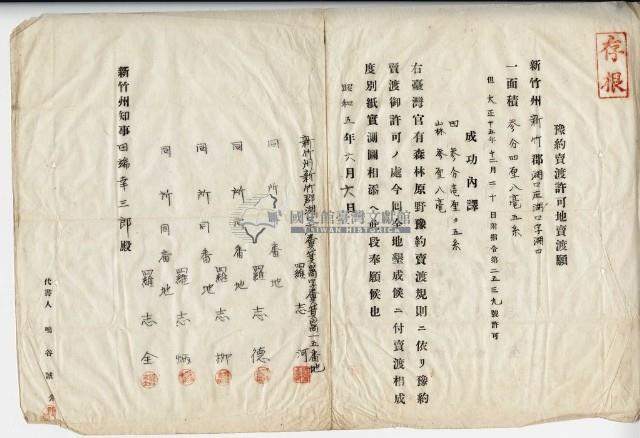 存根
豫約賣渡許可地賣渡願
新竹州新竹郡湖口庄湖口字湖口
一面積 參分四厘八毫五糸
但大正十五年十二月二十日附指令第二五三九號許可
成功內譯
田 參分壱厘〃五糸
山林 參厘八毫
右臺灣官有森林原野豫約賣渡規則ニ依リ豫約
賣渡御許可ノ處今回全地墾成候ニ付賣渡相成
度別紙實測圖相添ヘ此段奉願候也
昭和五年六月六日
新竹州新竹郡湖口庄
番地
羅志河
同所同番地 羅志德
同所同番地 羅志
同所同番地 羅志炳
同所同番地 羅志全
新竹州知事田端幸三郎殿
代書人 鳴谷
國史館臺灣文獻館
TAIWAN HISTORICA